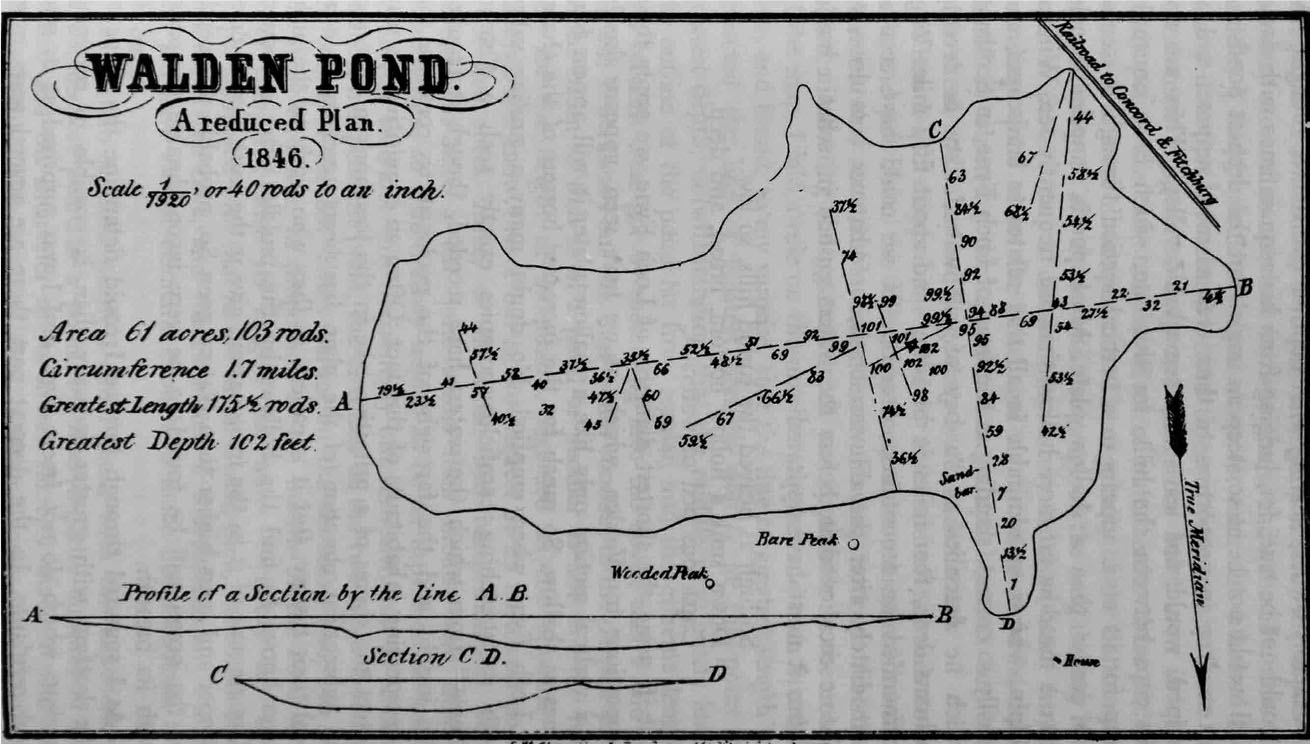 WALDEN POND.
A reduced Plan.
1846.
Scale 1/1920, or 40 rods to an inch.
Railroad to Concord & Fitchburg
Area 61 acres, 103 rods.
Circumference 1.7 miles.
Greatest Length 175½ rods.
Greatest Depth 102 feet.
C
63
84½
90
92
99½
99½
94
95
95
92½
84
59
28
7
20
13½
1
D
44
58½
54½
53½
43
54
53½
42½
67
68½
37½
74
99
101
100
74½
36½
101
102
102
100
98
A
19½
23½
41
57
58
40
37½
36½
66
52½
48½
51
69
92
99
88
69
27½
22
32
21
B
44
57½
40½
32
47½
45
60
59
59½
67
66½
83
Sand-
bar.
Bare Peak
Wooded Peak
House
True Meridian
Profile of a Section by the line A.B.
A
B
Section C.D.
C
D